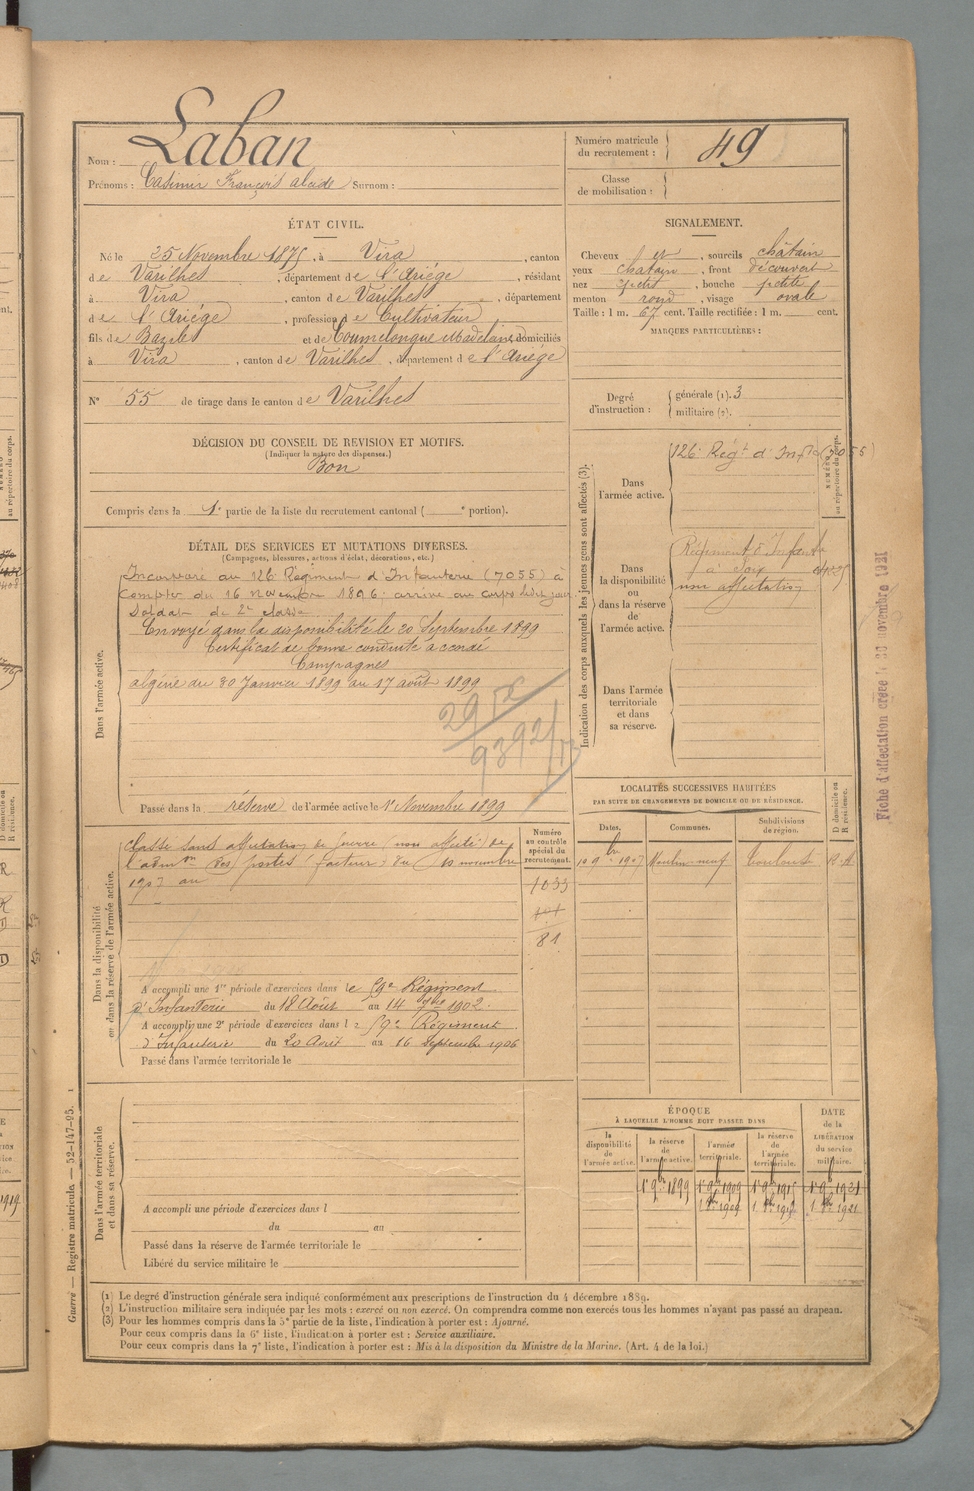 Nom : Laban
Prénoms : Casimir François alcide Surnom :
Numéro matricule
du recrutement : 49
Classe
de mobilisation :
ÉTAT CIVIL.
Né le 25 Novembre 1875, à Vira, canton
de Varilhes, département de l'Ariége, résidant
à Vira, canton de Varilhes, département
de l'Ariége, profession de Cultivateur
fils de Bazile et de Coumelongue Madelaine, domiciliés
à Vira, canton de Varilhes, département de l'Ariége
N° 55 de tirage dans le canton de Varilhes
SIGNALEMENT.
Cheveux et, sourcils châtain
yeux chatain, front découvert
nez petit, bouche petite
menton rond, visage ovale
Taille : 1 m. 67 cent. Taille rectifiée : 1 m. cent.
MARQUES PARTICULIÈRES :
Degré
d'instruction :
générale (1). 3
militaire (2).
DÉCISION DU CONSEIL DE REVISION ET MOTIFS.
(Indiquer la nature des dispenses.)
Bon
Compris dans la 1e partie de la liste du recrutement cantonal ( e portion).
DÉTAIL DES SERVICES ET MUTATIONS DIVERSES.
(Campagnes, blessures, actions d'éclat, décorations, etc.)
Dans l'armée active.
Incorporé au 126 Régiment d'Infanterie (7055) à
compter du 16 novembre 1896. arrivé au corps ledit jour
Soldat de 2e classe
Envoyé dans la disponibilité le 20 Septembre 1899
Certificat de bonne conduite accordé
Campagnes
algérie du 30 Janvier 1899 au 17 août 1899
Passé dans la réserve de l'armée active le 1er Novembre 1899
Indication des corps auxquels les jeunes gens sont affectés (3).
NUMÉRO
au répertoire du corps.
Dans
l'armée active.
126e Régt d'Infie (7055)
Dans
la disponibilité
ou
dans la réserve
de
l'armée active.
Régiment d'Infanterie
à Foix
non affectation
Dans l'armée
territoriale
et dans
sa réserve.
Fiche d'affectation créée le 23 novembre 1921
Dans la disponibilité
ou dans la réserve de l'armée active.
Classé sans affectation de Guerre (non affecté) de
l'admon des postes facteur, du 10 novembre
1907 au
Numéro
au contrôle
spécial du
recrutement.
1033
101
81
A accompli une 1re période d'exercices dans le 59e Régiment
d'Infanterie du 18 Août au 14 7bre 1902.
A accompli une 2e période d'exercices dans l e 59e Régiment
d'Infanterie du 20 Août au 16 Septembre 1906
Passé dans l'armée territoriale le
LOCALITÉS SUCCESSIVES HABITÉES
PAR SUITE DE CHANGEMENTS DE DOMICILE OU DE RÉSIDENCE.
Dates. Communes. Subdivisions
de région. D domicile ou
R résidence.
10 9bre 1907 Moulin-neuf Toulouse R
Dans l'armée territoriale
et dans sa réserve.
A accompli une période d'exercices dans l
du au
Passé dans la réserve de l'armée territoriale le
Libéré du service militaire le
ÉPOQUE
À LAQUELLE L'HOMME DOIT PASSER DANS
DATE
de la
LIBÉRATION
du service
militaire.
la
disponibilité
de
l'armée active.
la réserve
de
l'armée active.
l'armée
territoriale.
la réserve
de
l'armée
territoriale.
1er 9bre 1899 1er 9bre 1909 1er 9bre 1915 1er 9bre 1921
1909 1921
(1) Le degré d'instruction générale sera indiqué conformément aux prescriptions de l'instruction du 4 décembre 1889.
(2) L'instruction militaire sera indiquée par les mots : exercé ou non exercé. On comprendra comme non exercés tous les hommes n'ayant pas passé au drapeau.
(3) Pour les hommes compris dans la 5e partie de la liste, l'indication à porter est : Ajourné.
Pour ceux compris dans la 6e liste, l'indication à porter est : Service auxiliaire.
Pour ceux compris dans la 7e liste, l'indication à porter est : Mis à la disposition du Ministre de la Marine. (Art. 4 de la loi.)
Guerre — Registre matricule. — 52-147-95. 1